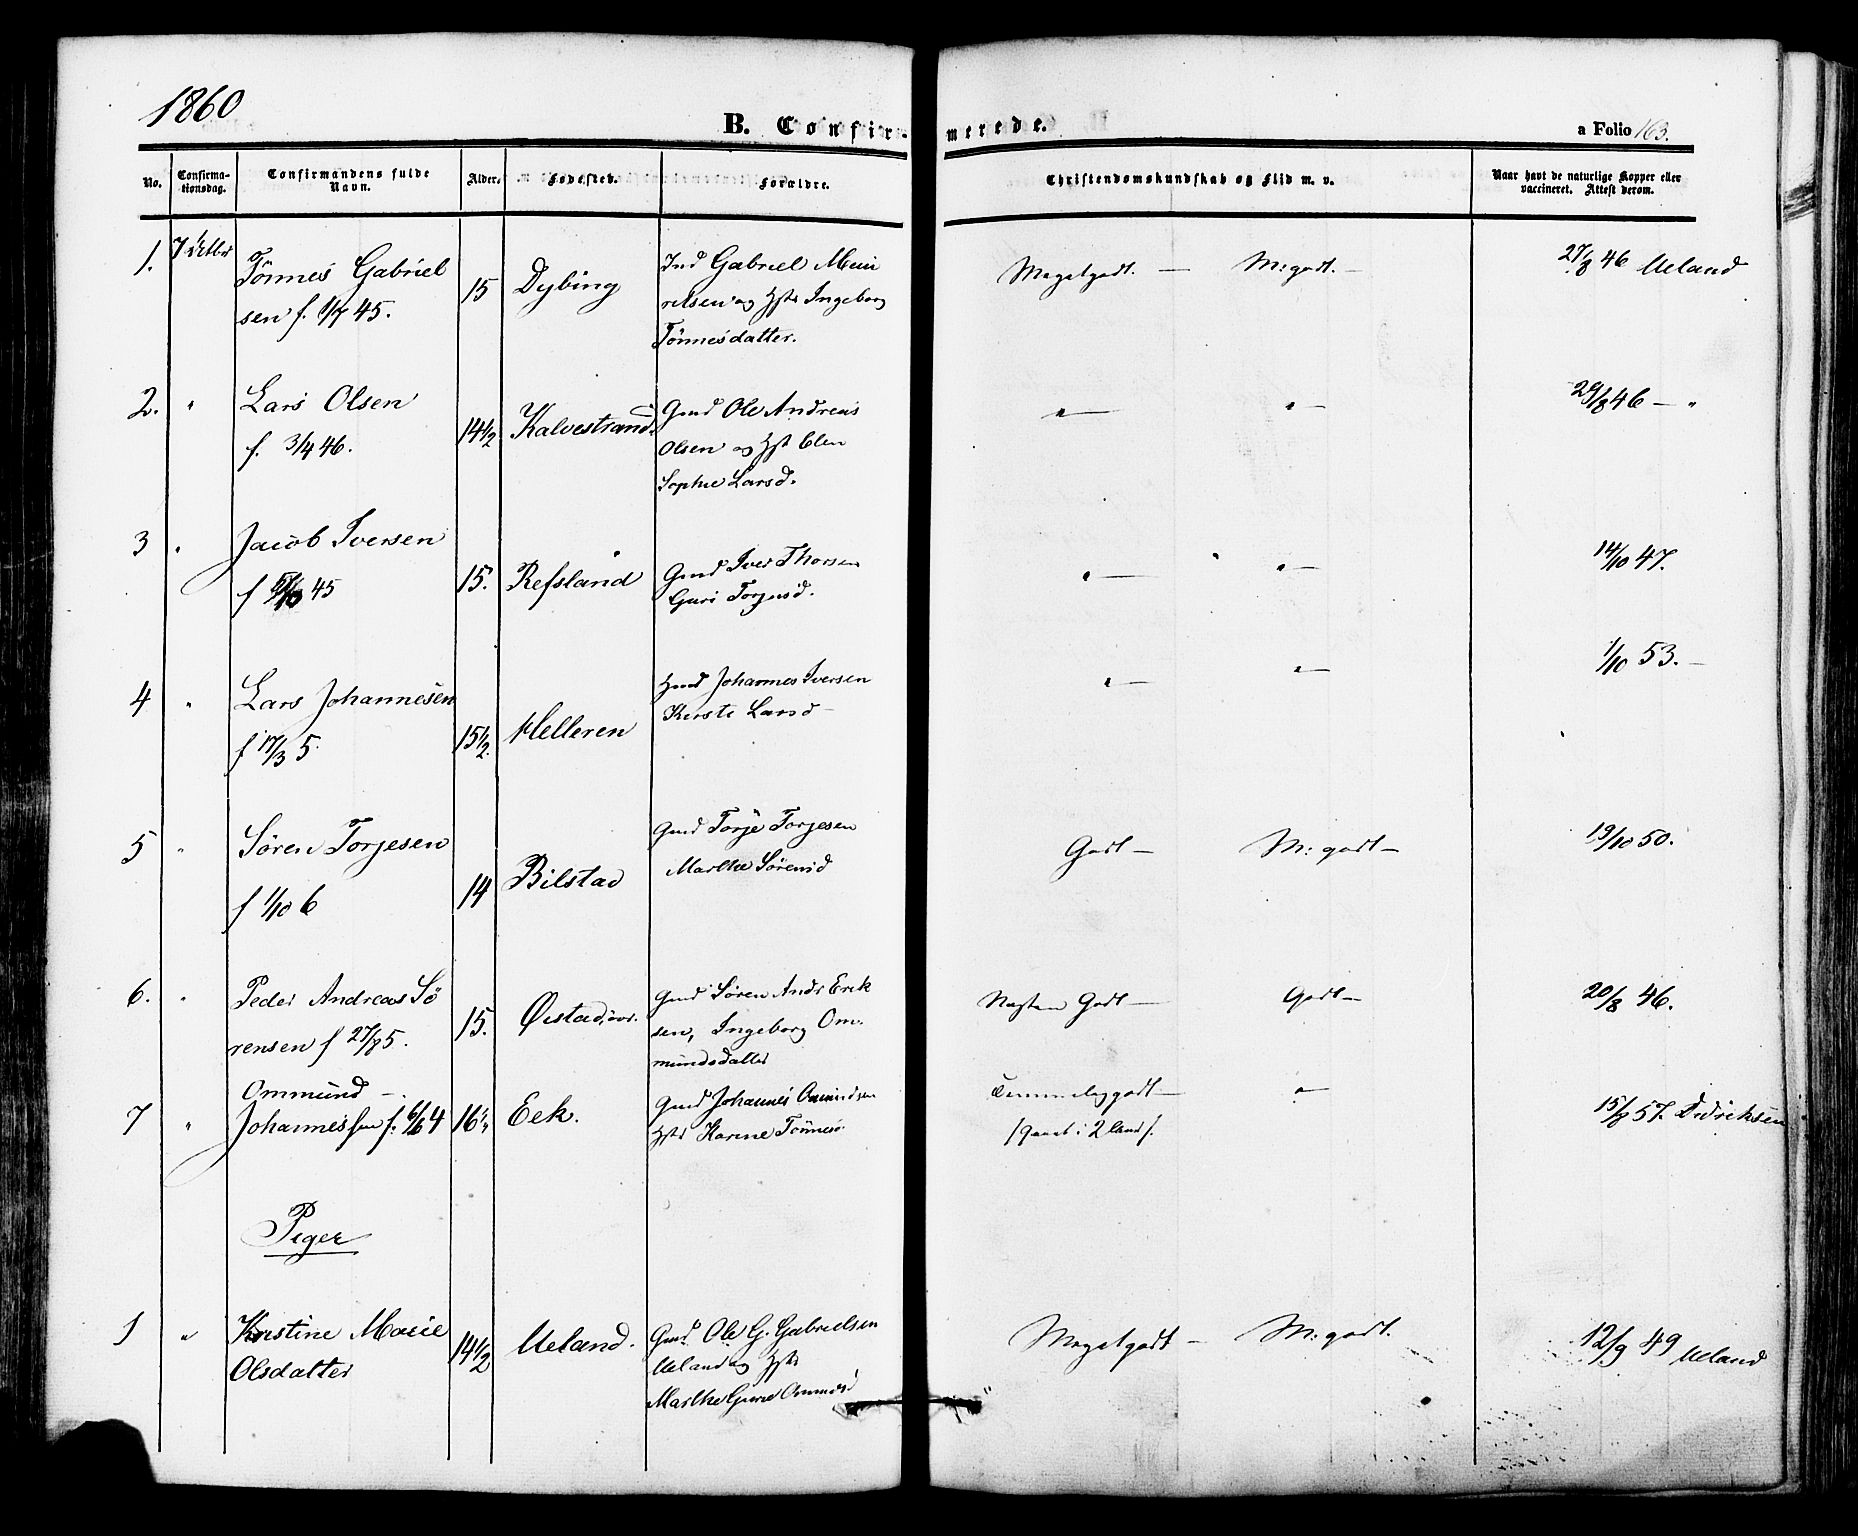 1860
B. Confir-
merede.
a Folio 163.
No.
Confirma-
tionsdag.
Confirmandens fulde
Navn.
Alder.
Fødested.
Forældre.
Christendomskundskab og Flid m. v.
Naar havt de naturlige Kopper eller
vaccineret. Attest derom.
1.
Tönnes Gabriel
sen f. 45.
15
Dybing
Ind Gabriel
relsen og Hst Ingeborg
Tönnesdatter.
Megetgodt. — M: godt. —
27/8 46 Ueland
2. "
Lars Olsen
f. 3/4 46.
14 1/2
Kalvestrand.
Gmd Ole Andreas
Olsen og Hst Elen
Sophie Larsd.
" — " —
29/8 46 — "
3 "
Jacob Iversen
f 45
15.
Refsland
Gmd Iver Thorsen
Guri Torjusd.
" — " —
14/10 47.
4 "
Lars Johannesen
f 17/3 5.
15 1/2.
Helleren
Hmd Johannes Iversen
Kirste Larsd —
" — " —
1/10 53. —
5 "
Sören Torjesen
f 1/10 6
14
Bilstad
Gmd Torje Torjesen
Marthe Sörensd
Godt — M: godt —
19/10 50.
6. "
Peder Andreas Sö
rensen f 27/8 5.
15.
Öistad,
Gmd Sören Andr Erik
sen, Ingeborg Om-
mundsdatter
Næsten Godt — Godt —
20/8 46.
7 "
Ommund —
Johannessen f. 4
16
Eek.
Gmd Johannes Ommundsen
Hst Karine Tönnesd.
Temmeliggodt — " —
2 /.
15/8 57. Didriksen
Piger
1 "
Kristine Marie
Olsdatter
14 1/2
Ueland.
Gmd. Ole G. Gabrielsen
Ueland og Hst
Marthe Gurine Ommdsd
Megetgodt — M: godt.
12/9 49 Ueland